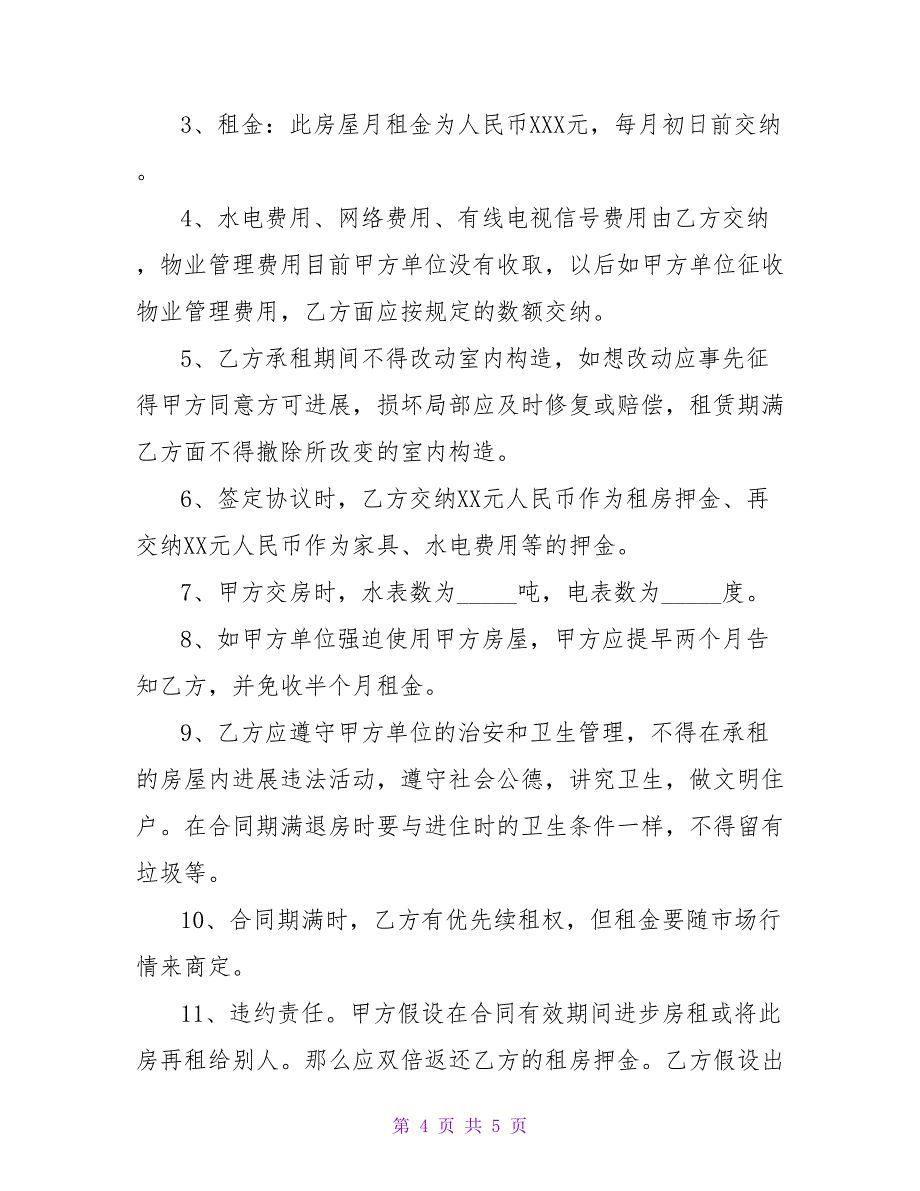 3、租金：此房屋月租金为人民币XXX元，每月初日前交纳
。
4、水电费用、网络费用、有线电视信号费用由乙方交纳
，物业管理费用目前甲方单位没有收取，以后如甲方单位征收
物业管理费用，乙方面应按规定的数额交纳。
5、乙方承租期间不得改动室内构造，如想改动应事先征
得甲方同意方可进展，损坏局部应及时修复或赔偿，租赁期满
乙方面不得撤除所改变的室内构造。
6、签定协议时，乙方交纳XX元人民币作为租房押金、再
交纳XX元人民币作为家具、水电费用等的押金。
7、甲方交房时，水表数为_____吨，电表数为_____度。
8、如甲方单位强迫使用甲方房屋，甲方应提早两个月告
知乙方，并免收半个月租金。
9、乙方应遵守甲方单位的治安和卫生管理，不得在承租
的房屋内进展违法活动，遵守社会公德，讲究卫生，做文明住
户。在合同期满退房时要与进住时的卫生条件一样，不得留有
垃圾等。
10、合同期满时，乙方有优先续租权，但租金要随市场行
情来商定。
11、违约责任。甲方假设在合同有效期间进步房租或将此
房再租给别人。那么应双倍返还乙方的租房押金。乙方假设出
第 4 页 共 5 页